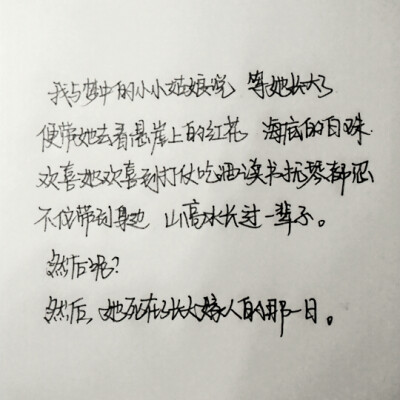 我与梦中的小小姑娘说 等她长大了
便带她去看悬崖上的红花 海底的白珠
欢喜她欢喜到打仗吃酒读书抚琴都忍
不住带到身边 山高水长过一辈子。
然后呢？
然后，她死在了长大嫁人的那一日。